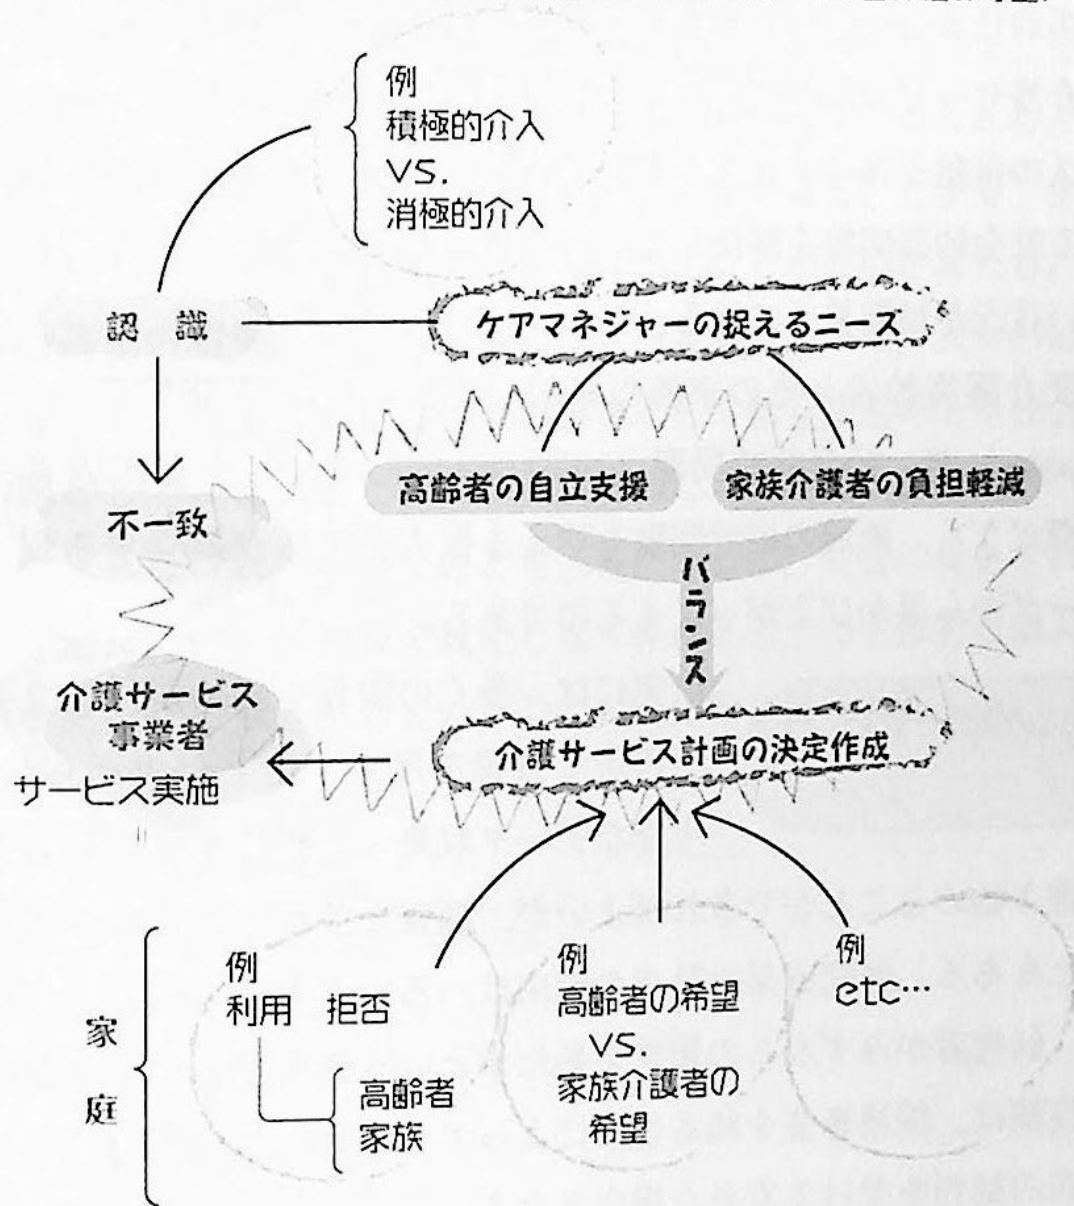 例
積極的介入
VS.
消極的介入
認　識
ケアマネジャーの捉えるニーズ
高齢者の自立支援
家族介護者の負担軽減
不一致
バランス
介護サービス
事業者
サービス実施
介護サービス計画の決定作成
家庭
例
利用　拒否
高齢者
家族
例
高齢者の希望
VS.
家族介護者の
希望
例
etc…